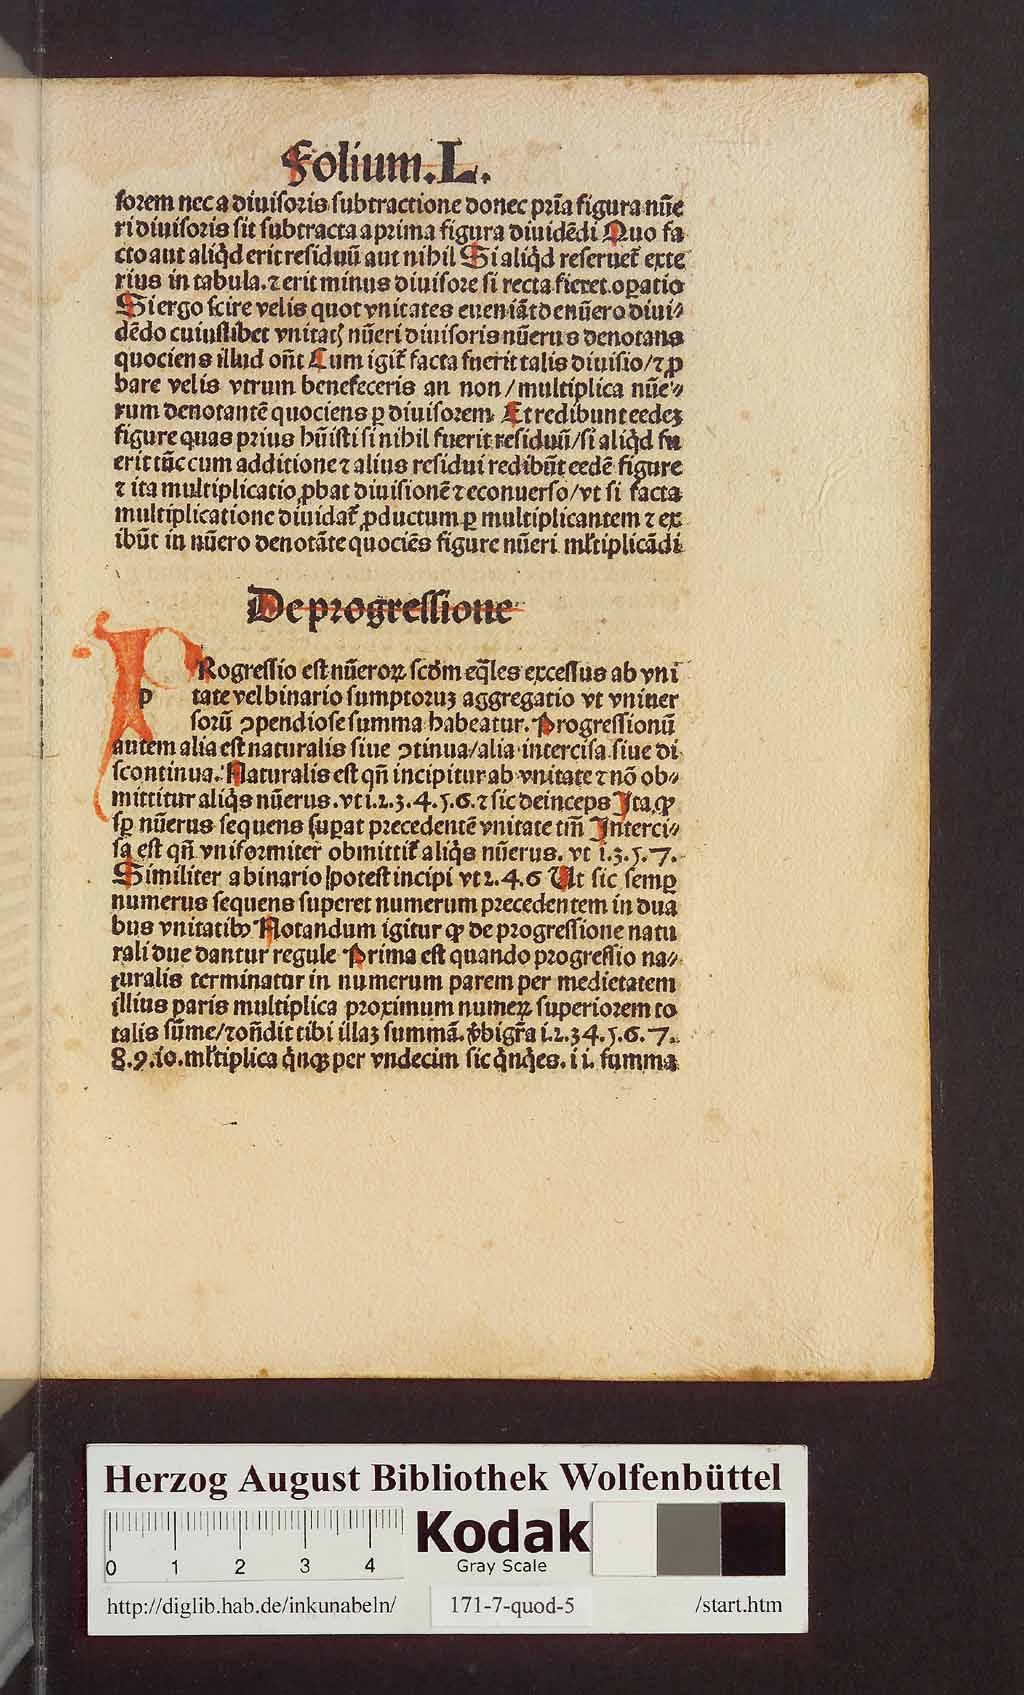 Folium.L.
sorem nec a diuisoris subtractione donec pri̅a figura nu̅e
ri diuisoris sit subtracta a prima figura diuide̅di Quo fa
cto aut aliq̇d erit residuu̅ aut nihil Si aliq̇d reseruet᷑ exte
rius in tabula. ⁊ erit minus diuisore si recta fieret oꝑatio
Si ergo scire velis quot vnitates eueniāt de nu̅ero diui⸗
de̅do cuiuslibet vnitatꝭ nu̅eri diuisoris nu̅erus denotans
quociens illud on̅t Cum igit᷑ facta fuerit talis diuisio/⁊ ꝓ
bare velis vtrum benefeceris an non/multiplica nu̅e⸗
rum denotante̅ quociens ꝑ diuisorem Et redibunt eedeꝫ
figure quas prius hu̅isti si nihil fuerit residuu̅/si aliq̇d fu
erit tu̅c cum additione ⁊ alius residui redibu̅t eede̅ figure
⁊ ita multiplicatio ꝓbat diuisione̅ ⁊ econuerso/vt si facta
multiplicatione diuidat᷑ ꝓductum ꝑ multiplicantem ⁊ ex
ibu̅t in nu̅ero denota̅te quocie̅s figure nu̅eri ml̅tiplica̅di
De progressione
p
PRogressio est nu̅eroꝝ scd̅m eq̅les excessus ab vni
tate vel binario sumptoruꝫ aggregatio vt vniuer
soru̅ ↄpendiose summa habeatur. Progressionu̅
autem alia est naturalis siue ↄtinua/alia intercisa siue di
scontinua. Naturalis est qn̅ incipitur ab vnitate ⁊ no̅ ob⸗
mittitur aliq̇s nu̅erus. vt i.2.3.4.5.6.⁊ sic deinceps Ita ꝙ
sꝑ nu̅erus sequens suꝑat precedente̅ vnitate tm̅ Interci⸗
sa est qn̅ vniformiter obmittit᷑ aliq̇s nu̅erus. vt i.3.5.7.
Similiter a binario potest incipi vt 2.4.6 Ut sic semꝑ
numerus sequens superet numerum precedentem in dua
bus vnitatibꝰ Notandum igitur ꝙ de progressione natu
rali due dantur regule Prima est quando progressio na⸗
turalis terminatur in numerum parem per medietatem
illius paris multiplica proximum numeꝝ superiorem to
talis su̅me/⁊ on̅dit tibi illaꝫ summa̅. v̇bigr̅a i.2.34.5.6.7.
8.9.i0.ml̅tiplica q̇nqꝫ per vndecim sic q̇nq̇es. i i. summa
Herzog August Bibliothek Wolfenbüttel
0 1 2 3 4
Kodak
Gray Scale
http://diglib.hab.de/inkunabeln/ 171-7-quod-5 /start.htm